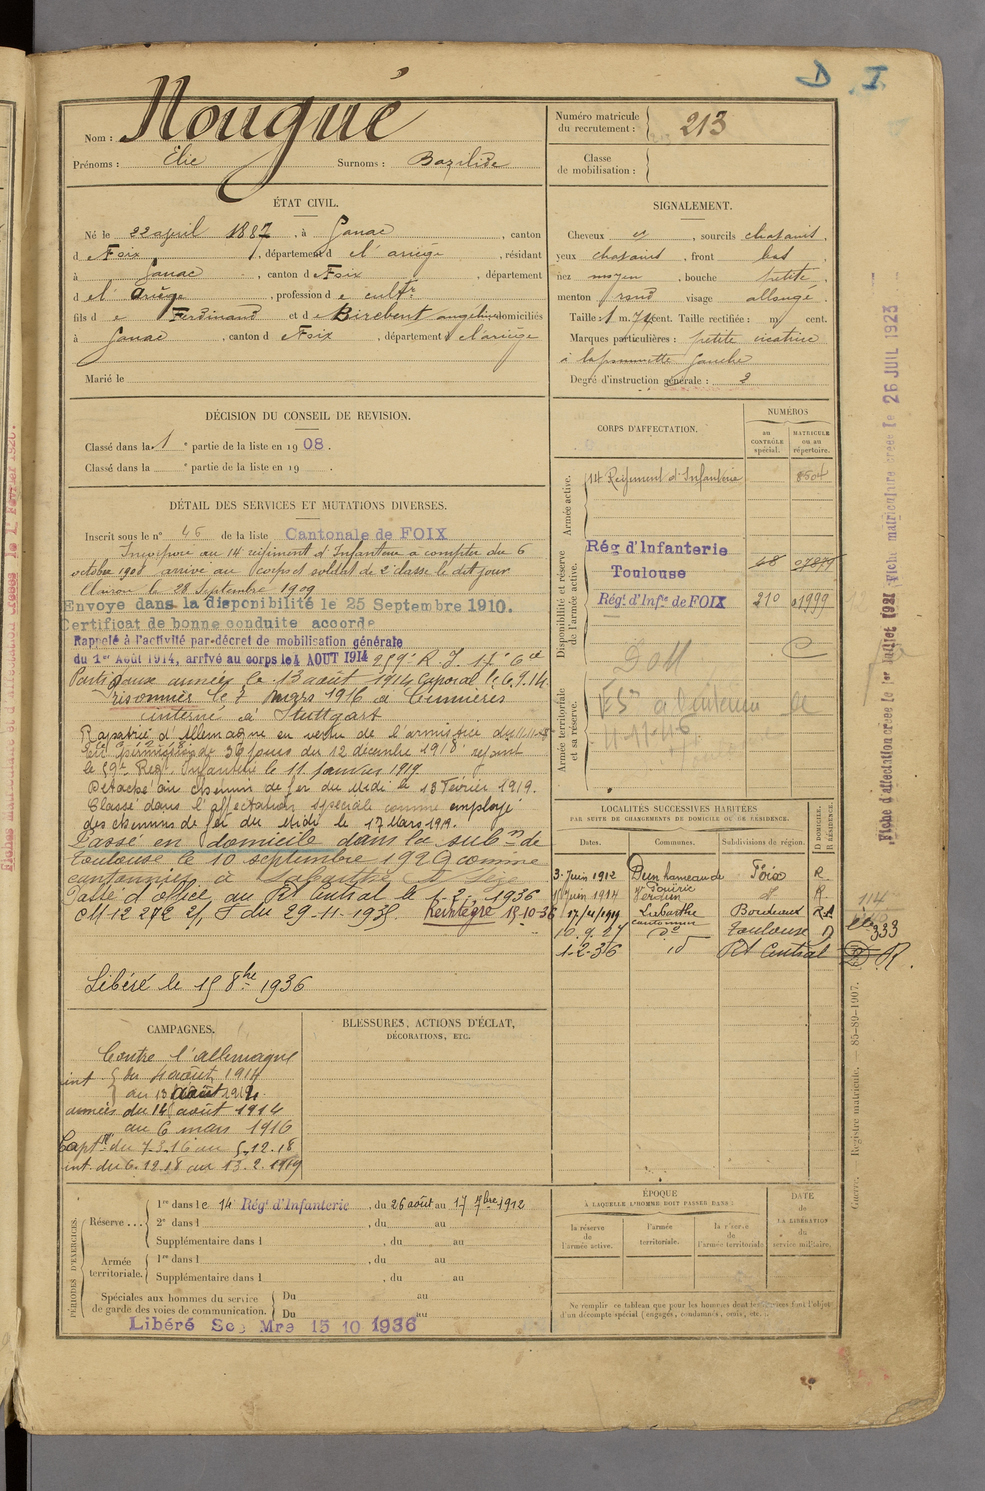 D I
Nom : Nougué
Prénoms : Elie Surnoms : Bazilide
Numéro matricule
du recrutement : 213
Classe
de mobilisation :
ÉTAT CIVIL.
Né le 22 april 1887, à Ganac, canton
d e Foix, département d e l'ariège, résidant
à Ganac, canton d e Foix, département
d e l'ariège, profession d e cultr
fils d e Ferdinand et d e Birebent angeline domiciliés
à Ganac, canton d e Foix, département d e l'ariège
Marié le
SIGNALEMENT.
Cheveux et, sourcils chatains,
yeux chatains, front bas,
nez moyen, bouche petite,
menton rond visage allongé.
Taille : 1 m. 74 cent. Taille rectifiée : m cent.
Marques particulières : petite cicatrice
à la pommette gauche
Degré d'instruction générale : 2
DÉCISION DU CONSEIL DE REVISION.
Classé dans la 1e partie de la liste en 1908.
Classé dans la e partie de la liste en 19 .
DÉTAIL DES SERVICES ET MUTATIONS DIVERSES.
Inscrit sous le n° 46 de la liste Cantonale de FOIX
Incorporé au 14e régiment d'Infanterie à compter du 6
octobre 1908 arrivé au corps et soldat de 2e classe le dit jour
Clairon le 28 Septembre 1909
Envoyé dans la disponibilité le 25 Septembre 1910.
Certificat de bonne conduite accordé
Rappelé à l'activité par décret de mobilisation générale
du 1er Août 1914, arrivé au corps le 4 AOUT 1914 259e R. I. 17e Cie
Parti aux armées le 13 août 1914 Caporal le 6.9.14
Prisonnier le 7 mars 1916 à Cumières
interné à Stuttgart
Rapatrié d'Allemagne en vertu de l'armistice du 11.11.18
permission de 30 jours du 12 decembre 1918 rejoint
le 59e Reg. Infanterie le 11 janvier 1919
Détaché aux chemins de fer du Midi le 13 Février 1919.
Classé dans l'affectation spéciale comme employé
des chemins de fer du Midi le 17 Mars 1919.
Passé en domicile dans la subon de
Toulouse le 10 septembre 1929 comme
cantonnier à Labarthe s/ Lèze
Passé d'office au Rt Central le 1.2.1936
CM 12.272 2/ du 29-11-1935 Réintégré 15-10-36
Libéré le 15 8bre 1936
CORPS D'AFFECTATION.
NUMÉROS
au
CONTRÔLE
spécial.
MATRICULE
ou au
répertoire.
Armée active.
14 Régiment d'Infanterie 8504
Disponibilité et réserve
de l'armée active.
Rég d'Infanterie
Toulouse 68 07879
Régt d'Infie de FOIX 210 01999
Armée territoriale
et sa réserve.
LOCALITÉS SUCCESSIVES HABITÉES
PAR SUITE DE CHANGEMENTS DE DOMICILE OU DE RÉSIDENCE.
D DOMICILE.
R RÉSIDENCE.
Dates. Communes. Subdivisions de région.
3 Juin 1912 Dun hameau de Foix R
Juin 1914 Verdun d R
17/4/1919 Labarthe Bordeaux Rd
cantonnier
10.9.29 do Toulouse D
1-2-36 id Rt Central R.
333
CAMPAGNES.
Contre l'allemagne
int du 4 août 1914
au 13 août 1914
armées du 14 août 1914
au 6 mars 1916
Captté du 7-3-16 au 5-12-18
int. du 6.12.18 au 13.2.1919
BLESSURES, ACTIONS D'ÉCLAT,
DÉCORATIONS, ETC.
PÉRIODES D'EXERCICES.
Réserve ... 1re dans le 14 Régt d'Infanterie, du 26 août au 17 7bre 1912
2e dans l , du au
Supplémentaire dans l , du au
Armée
territoriale. 1re dans l , du au
Supplémentaire dans l , du au
Spéciales aux hommes du service
de garde des voies de communication. Du au
Du au
Libéré Sce Mre 15 10 1936
ÉPOQUE
À LAQUELLE L'HOMME DOIT PASSER DANS :
la réserve
de
l'armée active.
l'armée
territoriale.
la réserve
de
l'armée territoriale
DATE
de
LA LIBÉRATION
du
service militaire.
Ne remplir ce tableau que pour les hommes dont les services font l'objet
d'un décompte spécial (engagés, condamnés, omis, etc.)
Fiche d'affectation créée le 1er Juillet 1921 Fiche matriculaire créée le 26 JUIL 1923
Guerre. Registre matricule. — 85-89-1907.